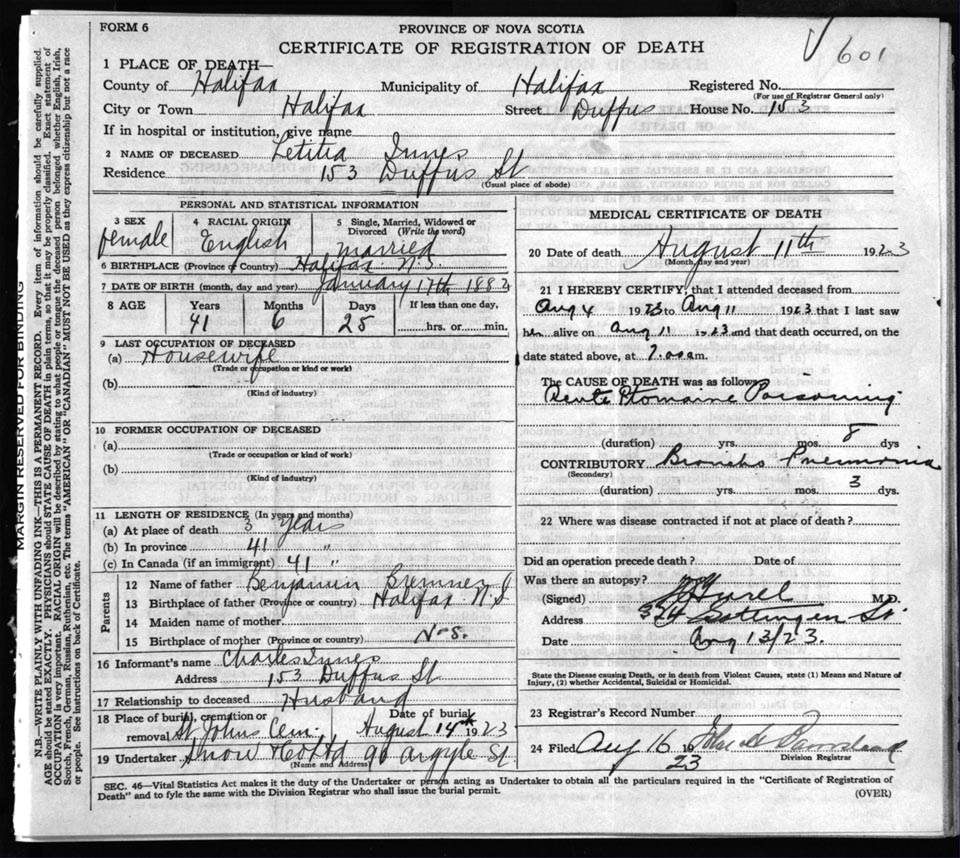 FORM 6
PROVINCE OF NOVA SCOTIA
CERTIFICATE OF REGISTRATION OF DEATH
601
1 PLACE OF DEATH—
County of Halifax Municipality of Halifax Registered No.
(For use of Registrar General only)
City or Town Halifax Street Duffus House No. 153
If in hospital or institution, give name
2 NAME OF DECEASED Letitia Innes
Residence 153 Duffus St
(Usual place of abode)
PERSONAL AND STATISTICAL INFORMATION
3 SEX 4 RACIAL ORIGIN 5 Single, Married, Widowed or Divorced (Write the word)
female English married
6 BIRTHPLACE (Province or Country) Halifax N.S.
7 DATE OF BIRTH (month, day and year) January 17th 1882
8 AGE Years Months Days If less than one day,
41 6 25 hrs. or min.
9 LAST OCCUPATION OF DECEASED
(a) Housewife
(Trade or occupation or kind or work)
(b)
(Kind of industry)
10 FORMER OCCUPATION OF DECEASED
(a)
(Trade or occupation or kind of work)
(b)
(Kind of industry)
11 LENGTH OF RESIDENCE (In years and months)
(a) At place of death 3 years
(b) In province 41 "
(c) In Canada (if an immigrant) 41 "
Parents
12 Name of father Benjamin Bremner
13 Birthplace of father (Province or country) Halifax N.S
14 Maiden name of mother
15 Birthplace of mother (Province or country) N.S.
16 Informant's name Charles Innes
Address 153 Duffus St
17 Relationship to deceased Husband
18 Place of burial, cremation or removal St Johns Cem. Date of burial August 14th 1923
19 Undertaker Snow & Co Ltd 90 Argyle St
(Name and Address)
MEDICAL CERTIFICATE OF DEATH
20 Date of death August 11th 1923
(Month, day and year)
21 I HEREBY CERTIFY, that I attended deceased from
Aug 4 1923 to Aug 11 1923 that I last saw
h alive on Aug 11 1923 and that death occurred, on the
date stated above, at 7.00 a m.
The CAUSE OF DEATH was as follows
Acute Ptomaine Poisoning
(duration) yrs. mos. 8 dys
CONTRIBUTORY Broncho Pneumonia
(Secondary)
3
(duration) yrs. mos. dys.
22 Where was disease contracted if not at place of death?
Did an operation precede death? Date of
Was there an autopsy?
(Signed) M.D.
Address Gottingen St
Date Aug 13/23.
State the Disease causing Death, or in death from Violent Causes, state (1) Means and Nature of
Injury, (2) whether Accidental, Suicidal or Homicidal.
23 Registrar's Record Number
24 Filed Aug 16 19 23
Division Registrar
SEC. 46—Vital Statistics Act makes it the duty of the Undertaker or person acting as Undertaker to obtain all the particulars required in the "Certificate of Registration of
Death" and to fyle the same with the Division Registrar who shall issue the burial permit.
(OVER)
MARGIN RESERVED FOR BINDING
N.B.—WRITE PLAINLY WITH UNFADING INK—THIS IS A PERMANENT RECORD. Every item of information should be carefully supplied.
AGE should be stated EXACTLY. PHYSICIANS should STATE CAUSE OF DEATH in plain terms, so that it may be properly classified. Exact statement of
OCCUPATION is very important. RACIAL ORIGIN will be described by stating to what people or tongue the deceased person belonged whether English, Irish,
Scotch, French, German, Russian, Ruthenian, etc. The terms "AMERICAN" OR "CANADIAN" MUST NOT BE USED as they express citizenship but not a race
or people. See instructions on back of Certificate.